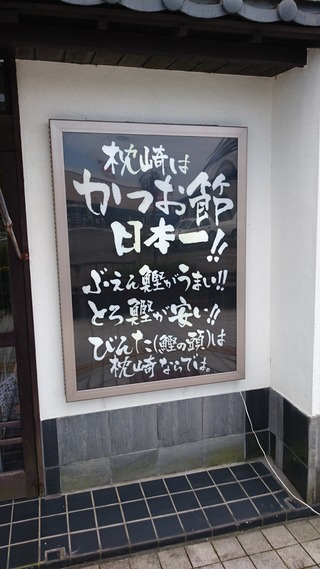 枕崎は
かつお節
日本一!!
ぶえん鰹がうまい!!
とろ鰹が安い!!
びんた(鰹の頭)は
枕崎ならでは。